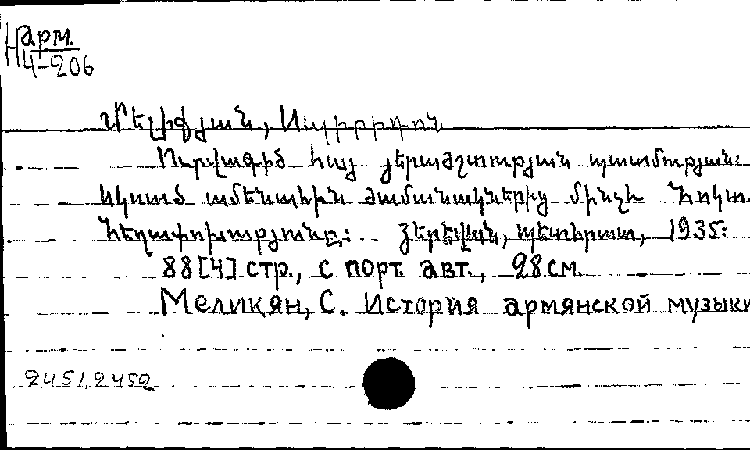 Н арм.
4-206
Մելիքյան, Սպիրիդոն
Ուրվագիծ հայ յերաժշտության պատմության:
Սկսած ամենահին ժամանակներից մինչև Հոկտ.
հեղափոխությունը: Յերևան, պետհրատ, 1935:
88[4] стр., с порт. авт., 28 см
Меликян, С. История армянской музыки
2451, 2452